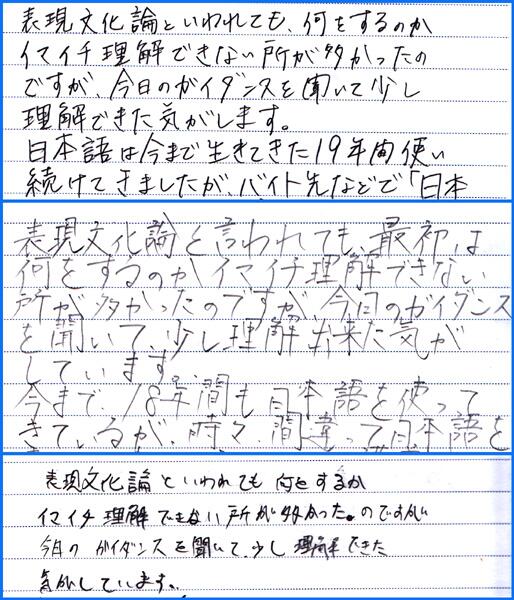 表現文化論といわれても、何をするのか
イマイチ理解できない所が多かったの
ですが、今日のガイダンスを聞いて少し
理解できた気がします。
日本語は今まで生きてきた19年間使い
続けてきましたが、バイト先などで「日本
表現文化論と言われても、最初は
何をするのかイマイチ理解できない
所が多かったのですが、今日のガイダンス
を聞いて、少し理解出来た気が
しています。
今まで、18年間も日本語を使って
きているが、時々、間違って日本語を
表現文化論といわれても何をするか
イマイチ理解できない所が多かった。のですが
今日のガイダンスを聞いて、少し理解できた
気がしています。